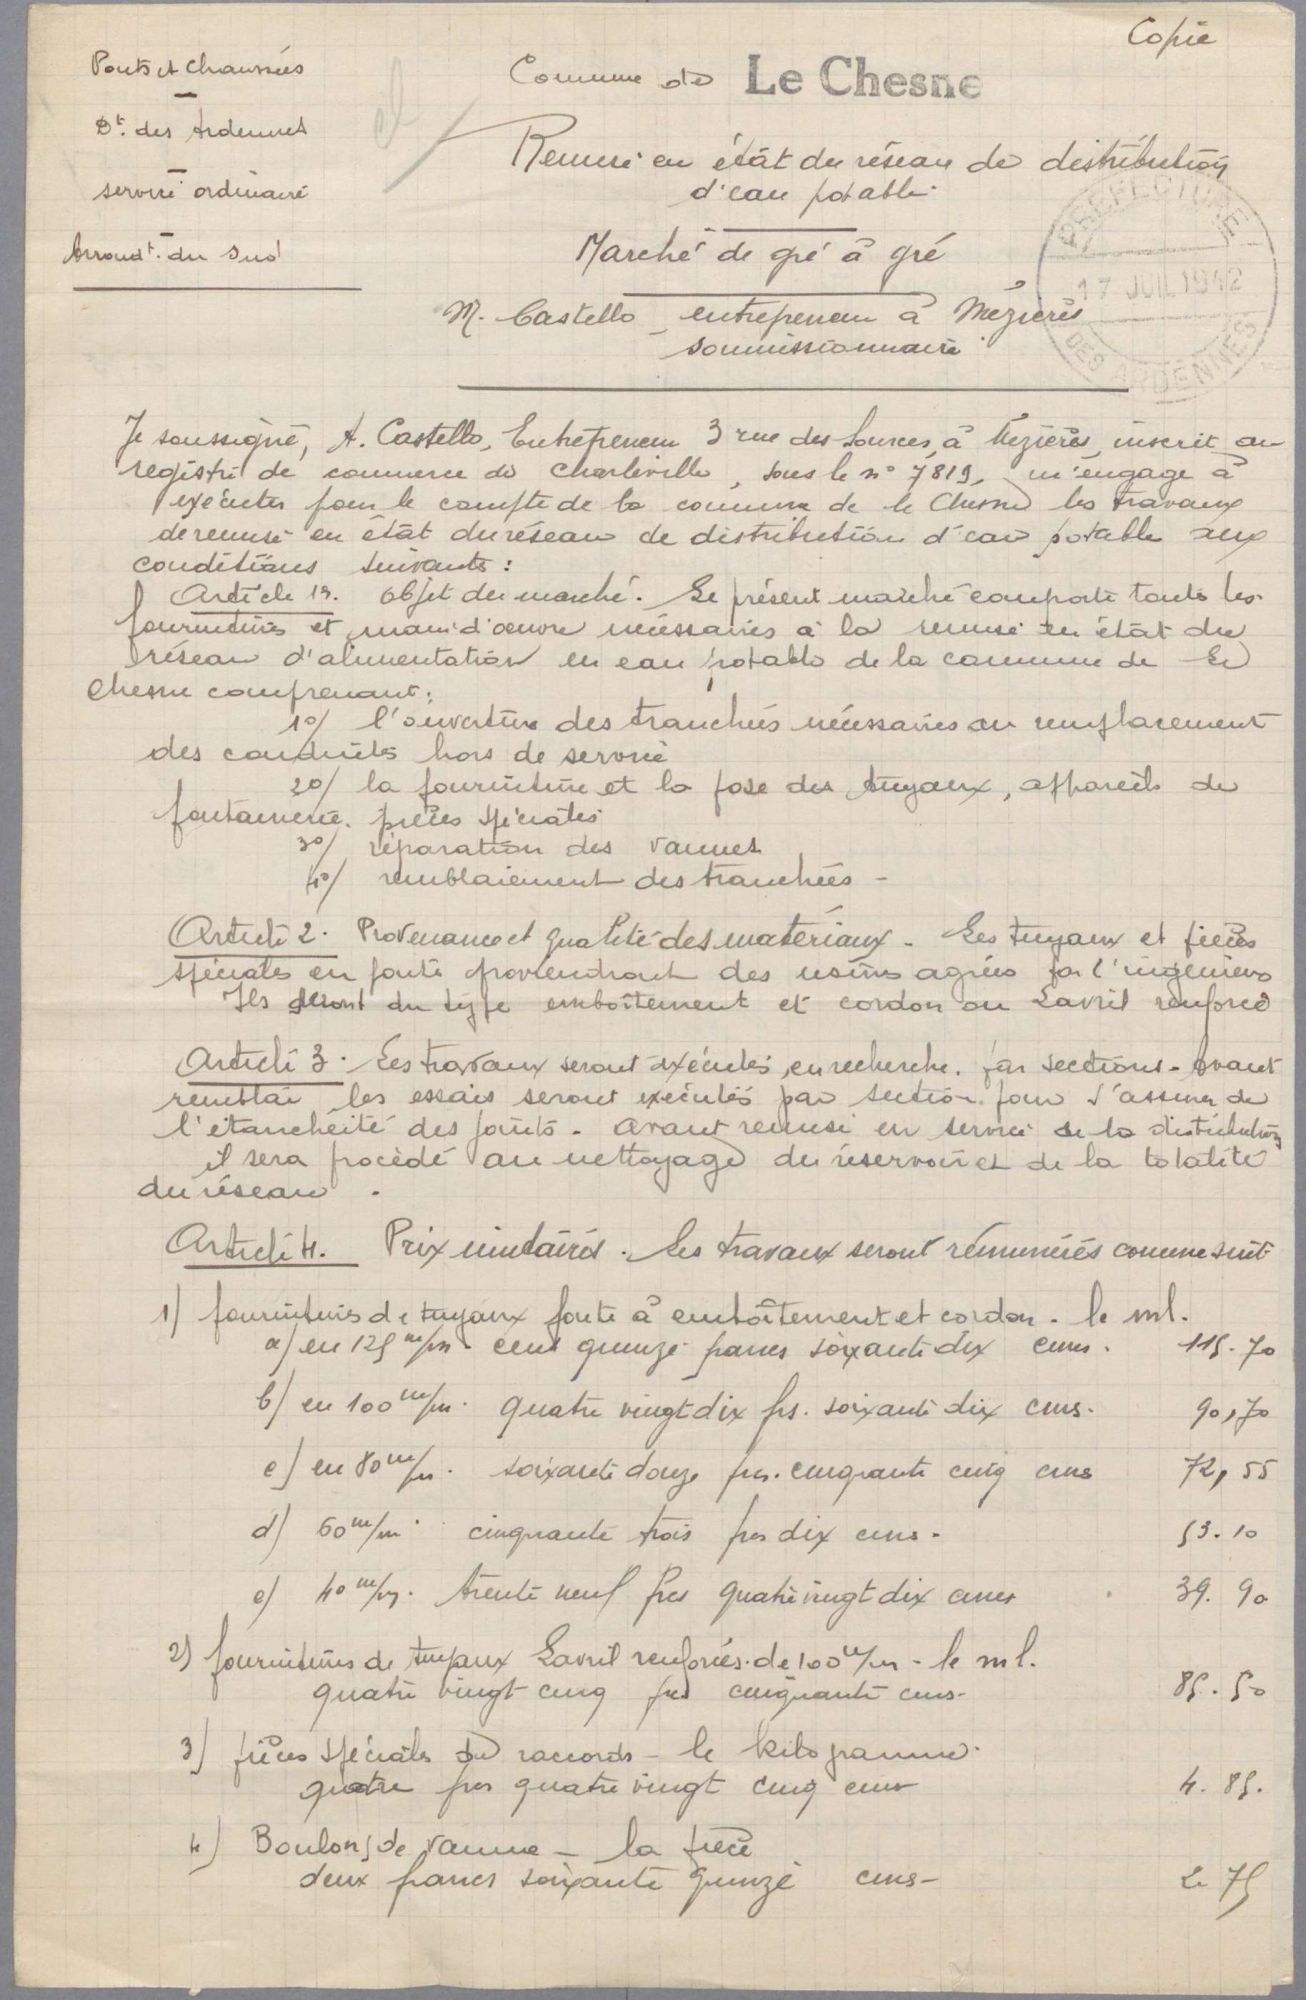 Copie
Ponts et Chaussées
Dt. des Ardennes
service ordinaire
Arrondt. du Sud
Commune de Le Chesne
Remise en état du réseau de distribution
d'eau potable.
Marché de gré à gré
M. Castello, entrepreneur à Mézières
soumissionnaire
PREFECTURE
17 JUIL 1942
DES ARDENNES
Je soussigné, A. Castello, Entrepreneur 3 rue des Sources, à Mézières, inscrit au
registre de commerce de Charleville, sous le n° 7819, m'engage à
exécuter pour le compte de la commune de le Chesne les travaux
de remise en état du réseau de distribution d'eau potable aux
conditions suivantes :
Article 1er. Objet du marché. Le présent marché comporte toutes les
fournitures et main d'oeuvre nécessaires à la remise en état du
réseau d'alimentation en eau potable de la commune de Le
Chesne comprenant :
1°/ l'ouverture des tranchées nécessaires au remplacement
des conduites hors de service
2°/ la fourniture et la pose des tuyaux, appareils de
fontainerie. pièces spéciales
3°/ réparation des vannes
4°/ remblaiement des tranchées -
Article 2. Provenance et qualité des matériaux. Les tuyaux et pièces
spéciales en fonte proviendront des usines agréés par l'ingénieur
Ils seront du type emboîtement et cordon ou Lavril renforcé
Article 3. Les travaux seront exécutés, en recherche, par sections. Avant
remblai les essais seront exécutés par section pour s'assurer de
l'étanchéité des joints. avant remise en service de la distribution
il sera procédé au nettoyage du réservoir et de la totalité
du réseau.
Article 4. Prix unitaires. Les travaux seront rémunérés comme suit
1) fournitures de tuyaux fonte à emboîtement et cordon. le ml.
a) en 125 m/m. cent quinze francs soixante dix cmes. 115.70
b) en 100 m/m. quatre vingt dix frs. soixante dix cms. 90,70
c) en 80 m/m. soixante douze frs. cinquante cinq cms 72,55
d) 60 m/m. cinquante trois frs dix cms. 53.10
e) 40 m/m. trente neuf frs quatre vingt dix cmes 39.90
2) fournitures de tuyaux Lavril renforcés de 100 m/m. le ml.
quatre vingt cinq frs cinquante cms. 85.50
3) pièces spéciales de raccords - le kilogramme.
quatre frs quatre vingt cinq cms 4.85.
4) Boulons de vanne - la pièce
deux francs soixante quinze cms - 2.75